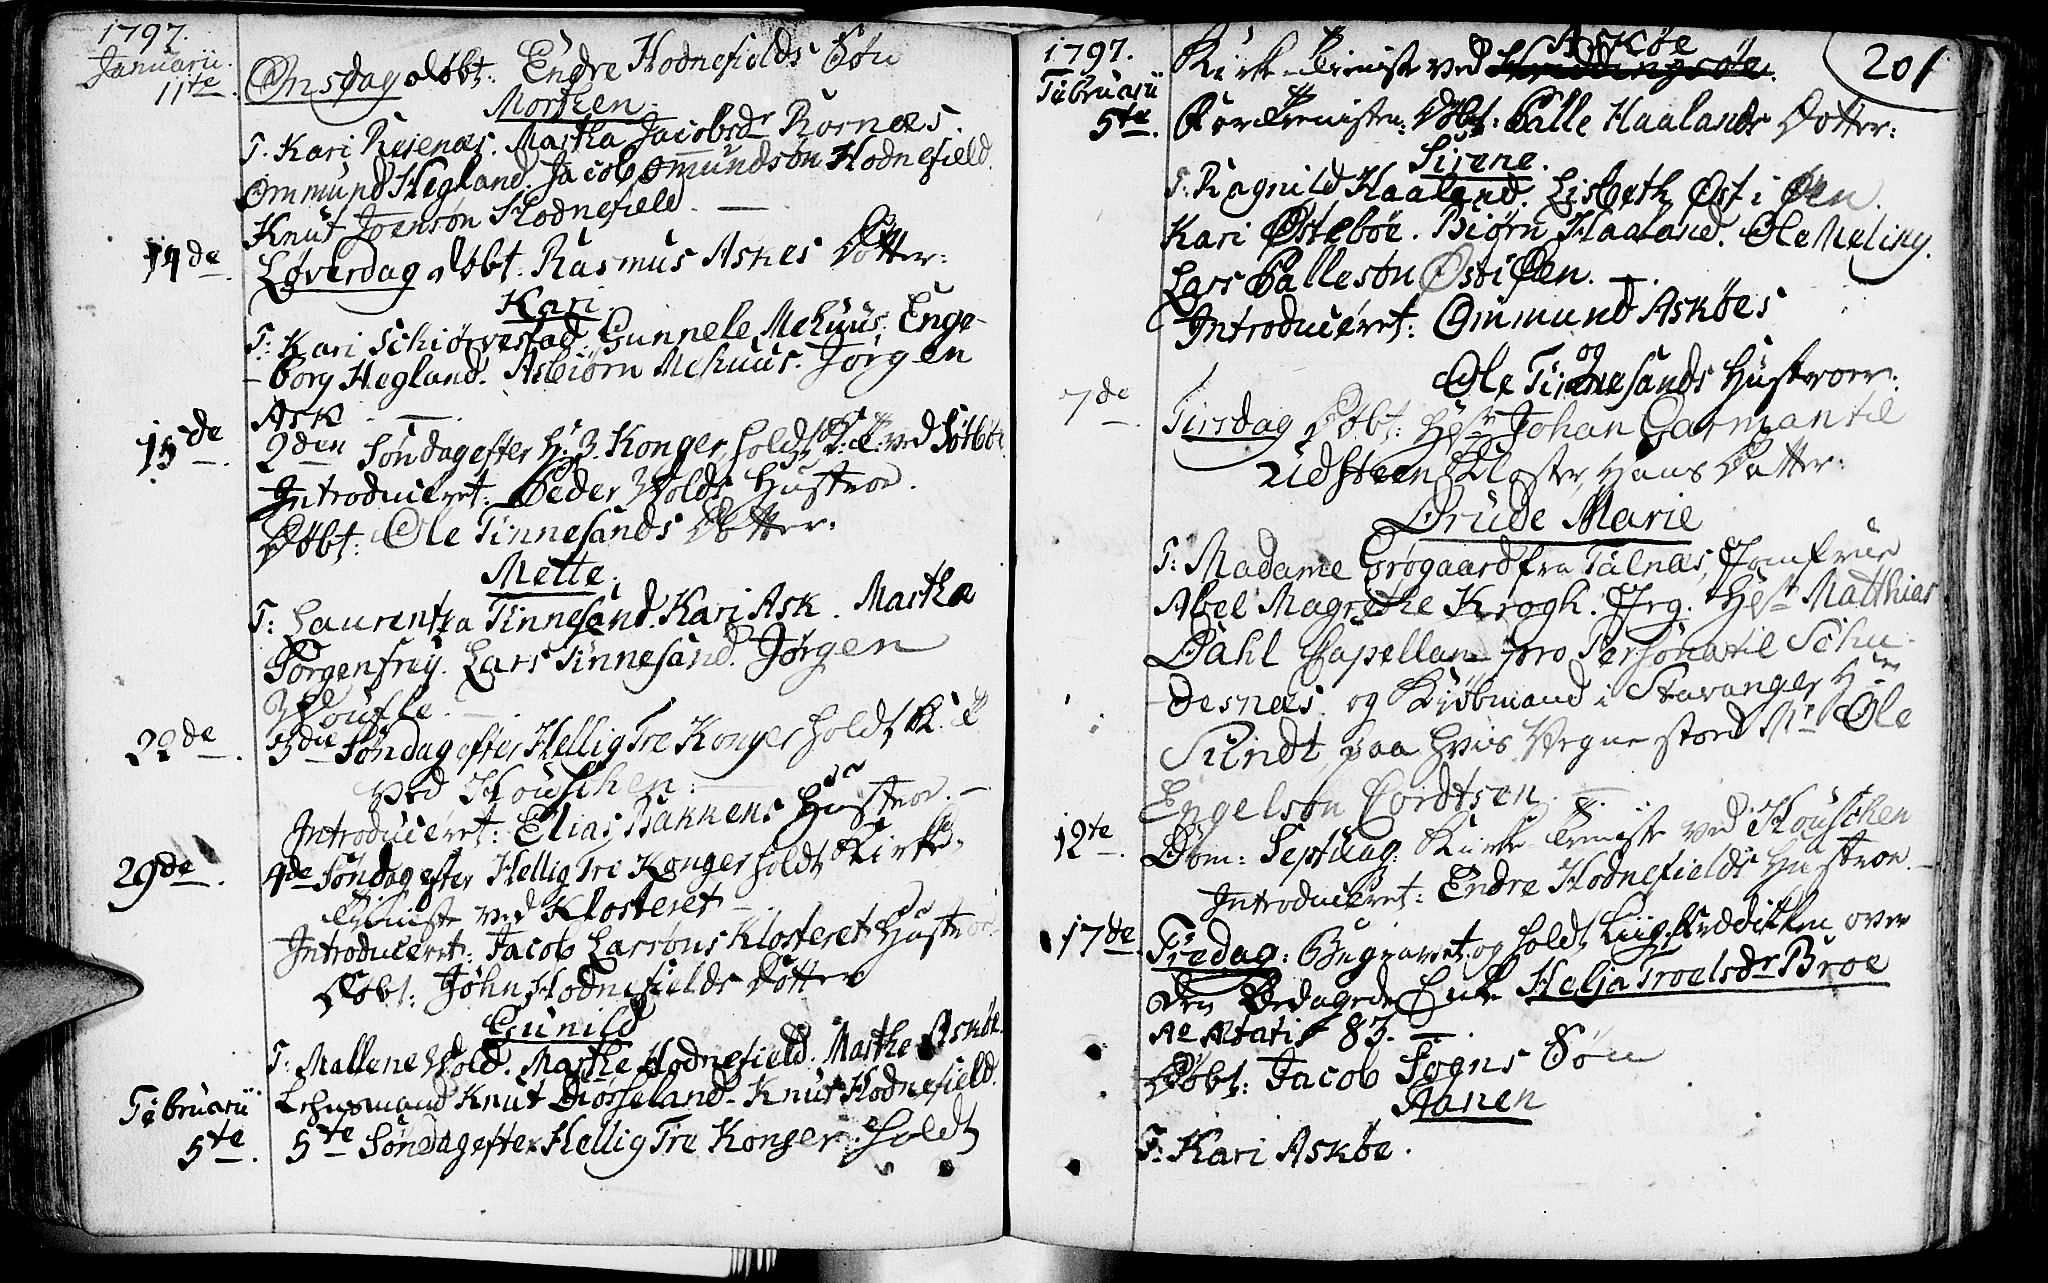 1797.
Januarii.
11te.
Onsdag døbt: Endre Hodnefields Søn
Morten.
T. Kari Reienæs. Martha Jacobsdr Rornæs.
Ommund Hegland. Jacob Omundsøn Hodnefield.
Knut Joensøn Hodnefield. —
14de.
Løverdag døbt. Rasmus Askes Dotter:
Kari
T: Kari Schiørvestad. Gunnele Mehuus. Enge-
-borg Hegland. Asbiørn Mehuus. Jørgen
Ask —
15de.
2den Søndag efter H: 3 Konger, holdt K: T: ved Sørbøe
Introduceret: Peder Wolds Hustroe.
Døbt: Ole Finnesands Dotter:
Mette.
T: Laurentza Finnesand. Kari Ask. Martha
Sorgenfrey. Lars Finnesand. Jørgen
22de.
3die Søndag efter Hellig Tre Konger holdt K: T
ved Houschen:
Introduceret: Elias Bakkens Hustroe. —
29de.
4de Søndag efter Hellig Tre Konger holdt Kirke-
Tieniste ved Klosteret —
Introduceret: Jacob Larsøns Klosteret Hustroe
Døbt: John Hodnefields Dotter
Gunild
T: Mallene Wold. Marthe Hodnefield. Marthe Askøe.
Lehnsmand Knut Diørseland. Knut Hodnefield.
Februarii
5te.
5te Søndag efter Hellig Tre Konger. holdt
201
1797.
Februarii
5te.
Askøe
Kirke-Tieniste ved Hriddingsøe.
Før Tienisten: Døbt: Palle Haalands Dotter:
Sirene.
T: Ragnild Haaland. Lisbeth Øst i Øen.
Kari Østebøe. Biørn Haaland. Ole Meling.
Lars Pallesøn Øst i Øen. —.
Introduceret: Ommund Askøes
og
Ole Finnesands Hustroer:
7de
Tirsdag Døbt: Hr Johan Garman til
Udsteen Kloster, Hans Dotter:
Drude Marie
T: Madame Grøgaard fra Talnæs, Jomfrue
Abel Magrethe Krogh. Jrg. Hr Matthias
Dahl Capellan pro Persona til Schu-
-desnæs. og Kiøbmand i Stavanger Hr
Sundt paa hvis Vegne stod Mr Ole
Engelsøn Cordtsen —
12te.
Dom: Septuag: Kirke-Tieniste ved Houschen
Introduceret: Endre Hodnefields Hustroe. —
17de.
Fredag: Begravet og holdt Liig-Prædikken over
den Bedagede Enke Helja Troelsdr Broe
Aetatis 83. —.
Døbt: Jacob Sogns Søn
Aanen
T: Kari Askøe.